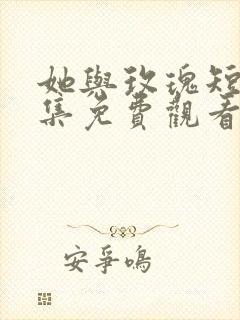 她與玫瑰短
集免費觀看
安爭鳴